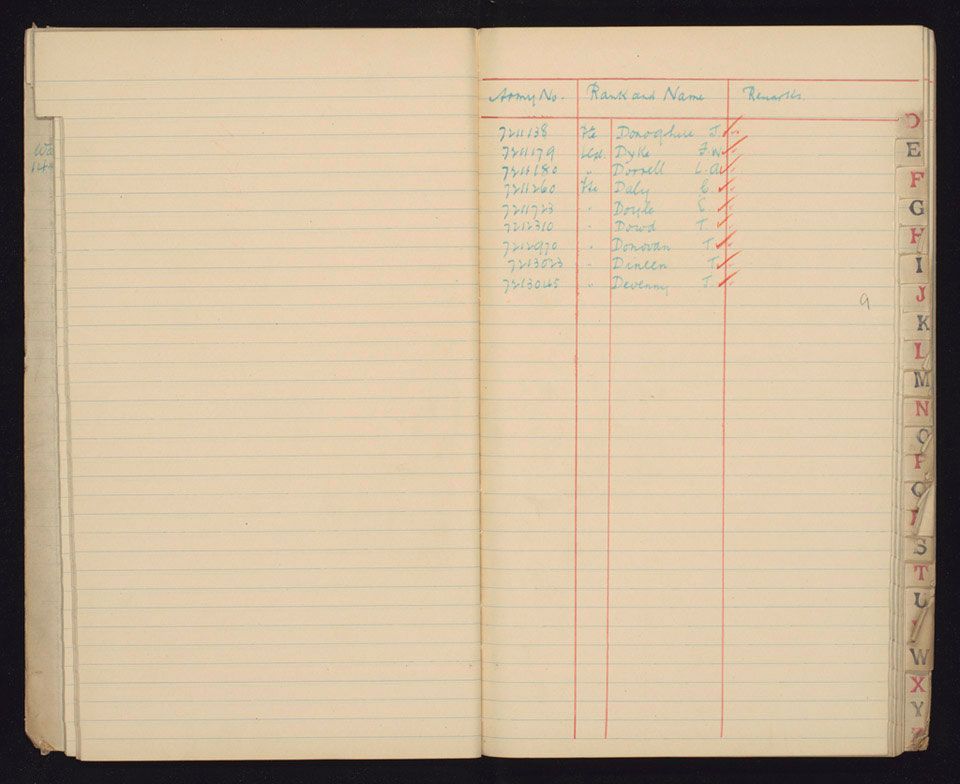 Army No. Rank and Name Remarks.
7211138 Pte Donoghue J.
7211179 Dyke F.W
7211180 " L.A
7211260 Pte Daly C.
7211723 " Doyle
7212310 " Dowd T.
7212970 " Donovan T.
7213023 " Dineen T.
7213045 " Devenny J.
9
D
E
F
G
H
I
J
K
L
M
N
O
P
Q
S
T
U
W
X
Y